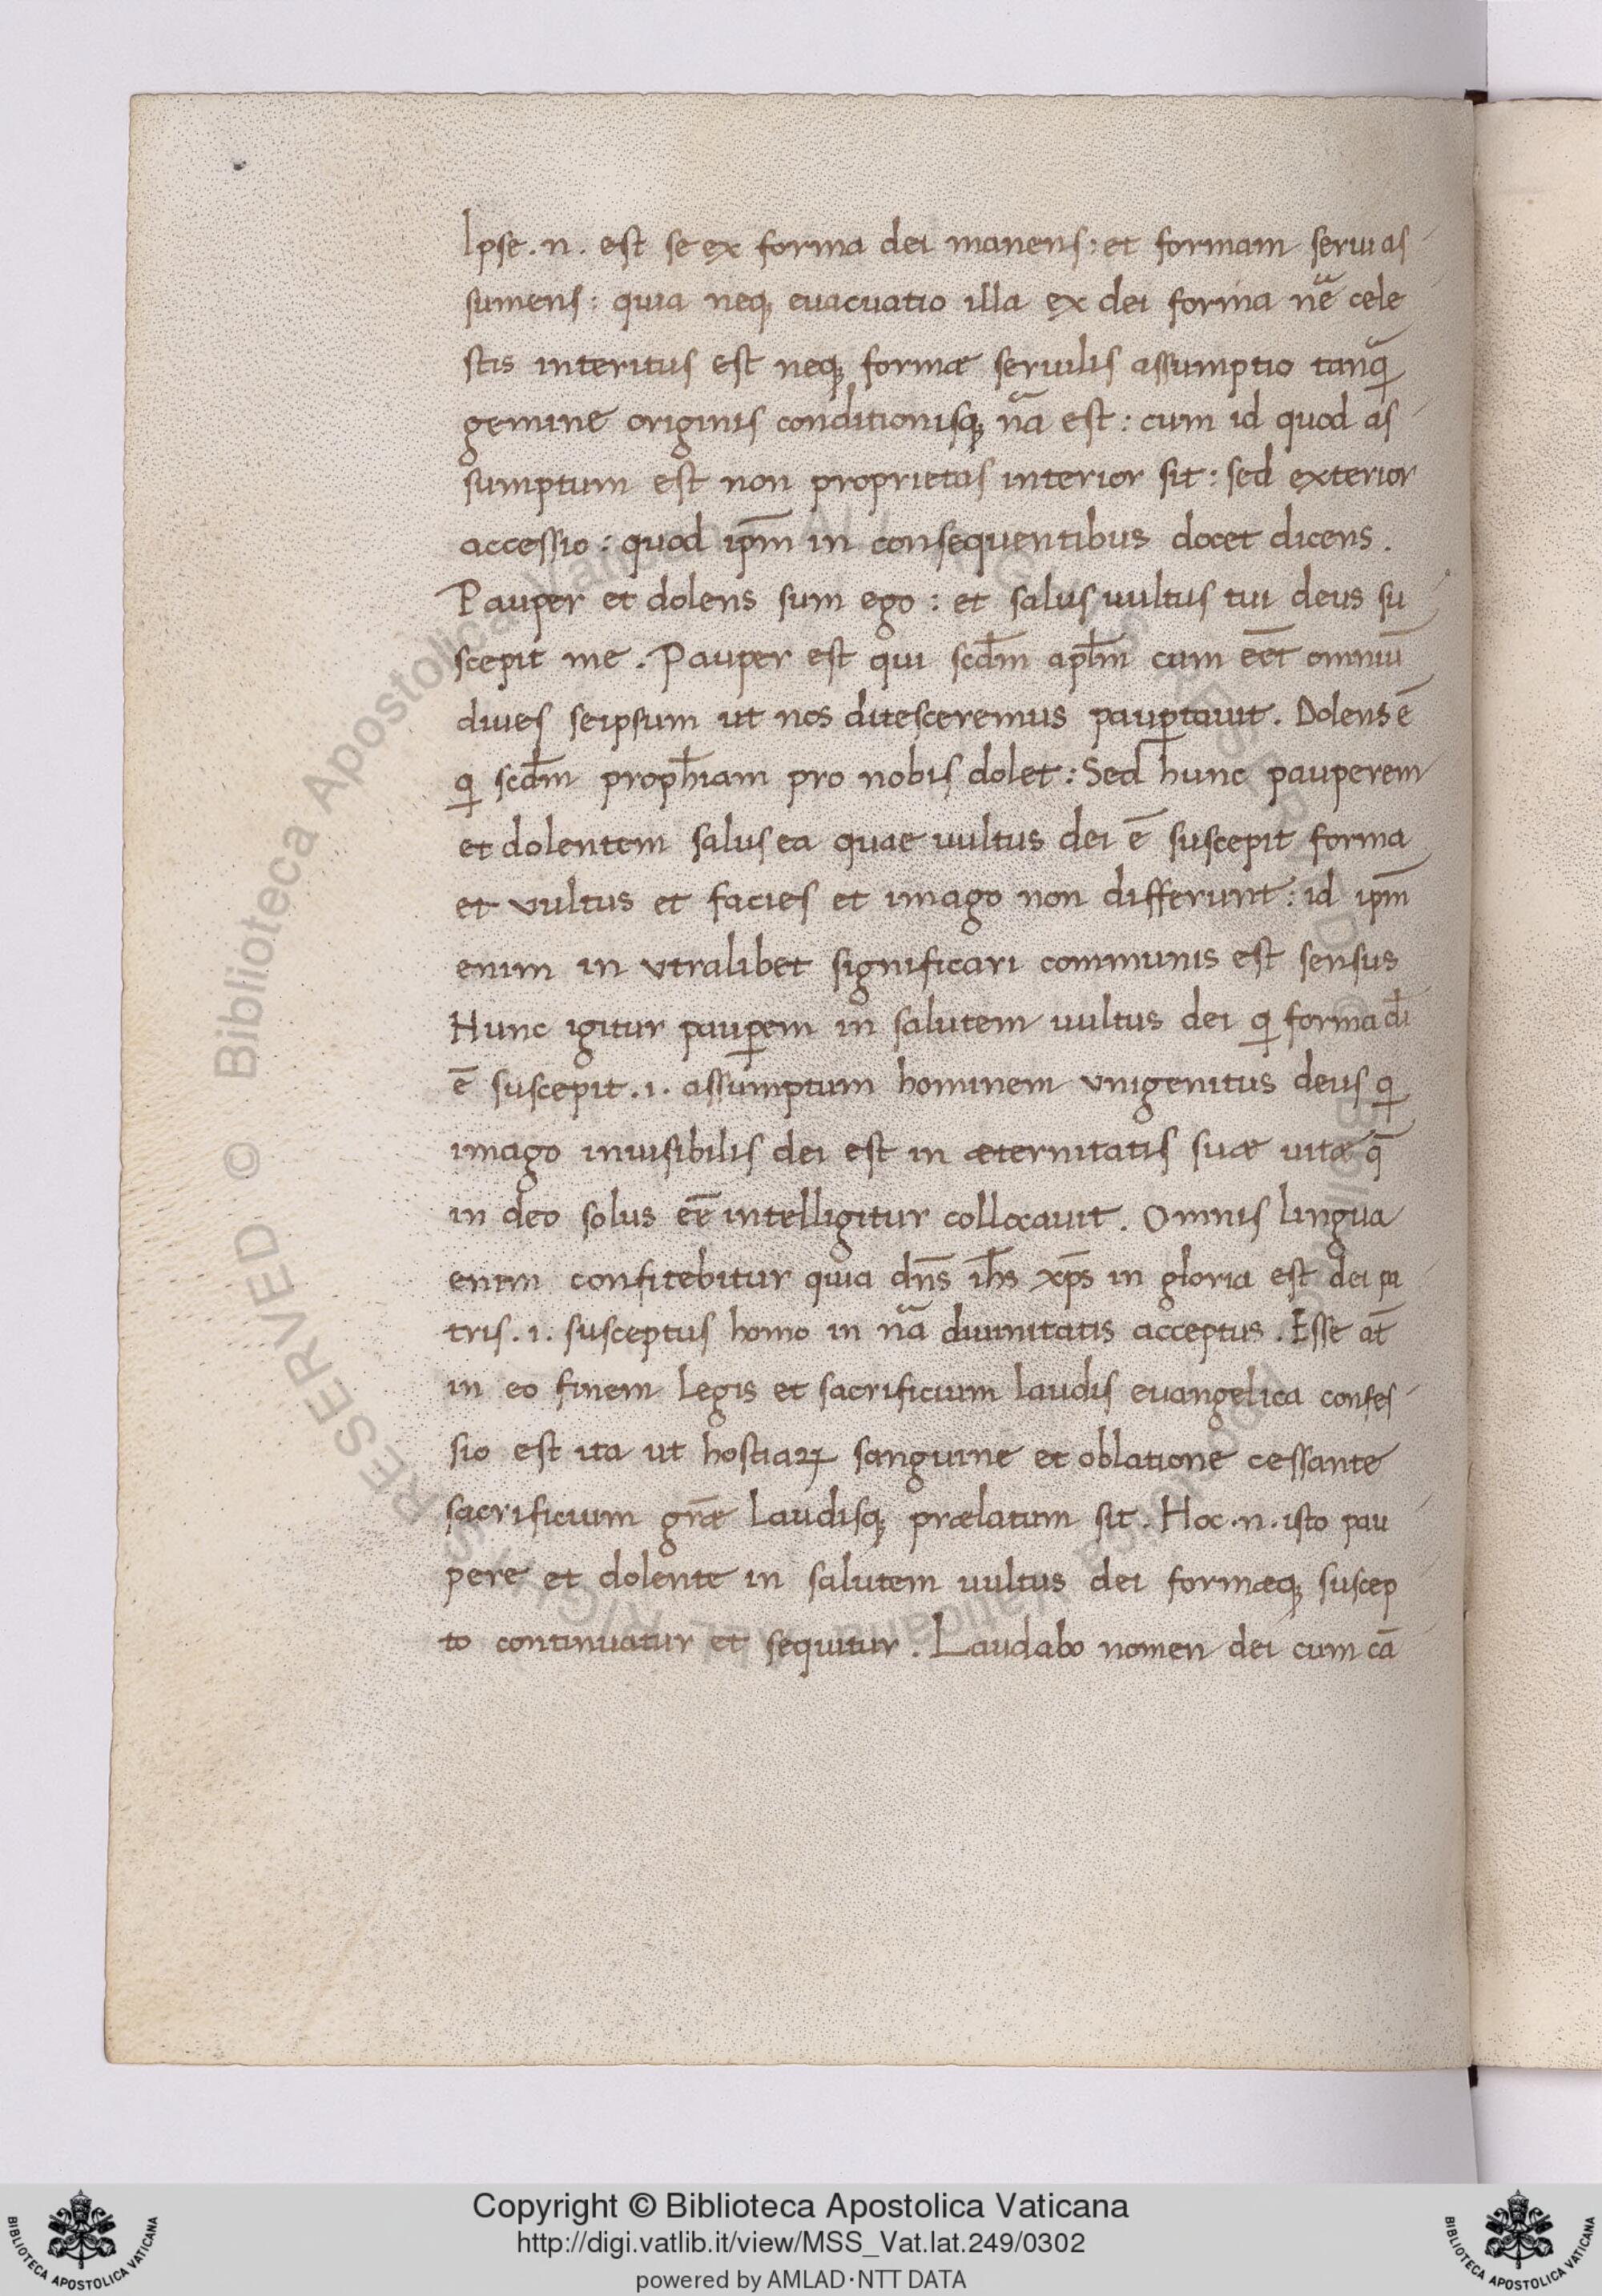 Ipse .n. est se ex forma dei manens: et formam serui as
sumens: quia neq; euacuatio illa ex dei forma nᷓe cele
stis interitus est neq; formæ seruilis assumptio tanqᷓ
gemine originis conditionisq; nᷓa est: cum id quod as
sumptum est non proprietas interior sit: sed exterior
accessio: quod ip̄m in consequentibus docet dicens.
Pauper et dolens sum ego: et salus uultus tui deus su
scepit me. Pauper est qui scd̄m apl̄m cum eēt omniū
diues seipsum ut nos ditesceremus paup̱tauit. Dolens ē
qi scd̄m proph̄iam pro nobis dolet: Sed hunc pauperem
et dolentem salus ea quae uultus dei ē suscepit forma
et vultus et facies et imago non differunt: id ip̄m
enim in vtralibet significari communis est sensus
Hunc igitur paup̱em in salutem uultus dei qi forma dī
ē suscepit .i. assumptum hominem vnigenitus deus qi
imago inuisibilis dei est in æternitatis suæ uitæ q̄
in deo solus eē intelligitur collocauit. Omnis lingua
enim confitebitur quia dn̄s ih̄s xp̄s in gloria est dei pa
tris .i. susceptus homo in nᷓa diuinitatis acceptus. Esse at̄
in eo finem legis et sacrificium laudis euangelica confes
sio est ita ut hostiaꝝ sanguine et oblatione cessante
sacrificium gr̄æ laudisq; prælatum sit. Hoc .n. isto pau
pere et dolente in salutem uultus dei formæq; suscep
to continuatur et sequitur. Laudabo nomen dei cum cā
Copyright © Biblioteca Apostolica Vaticana
http://digi.vatlib.it/view/MSS_Vat.lat.249/0302
powered by AMLAD·NTT DATA